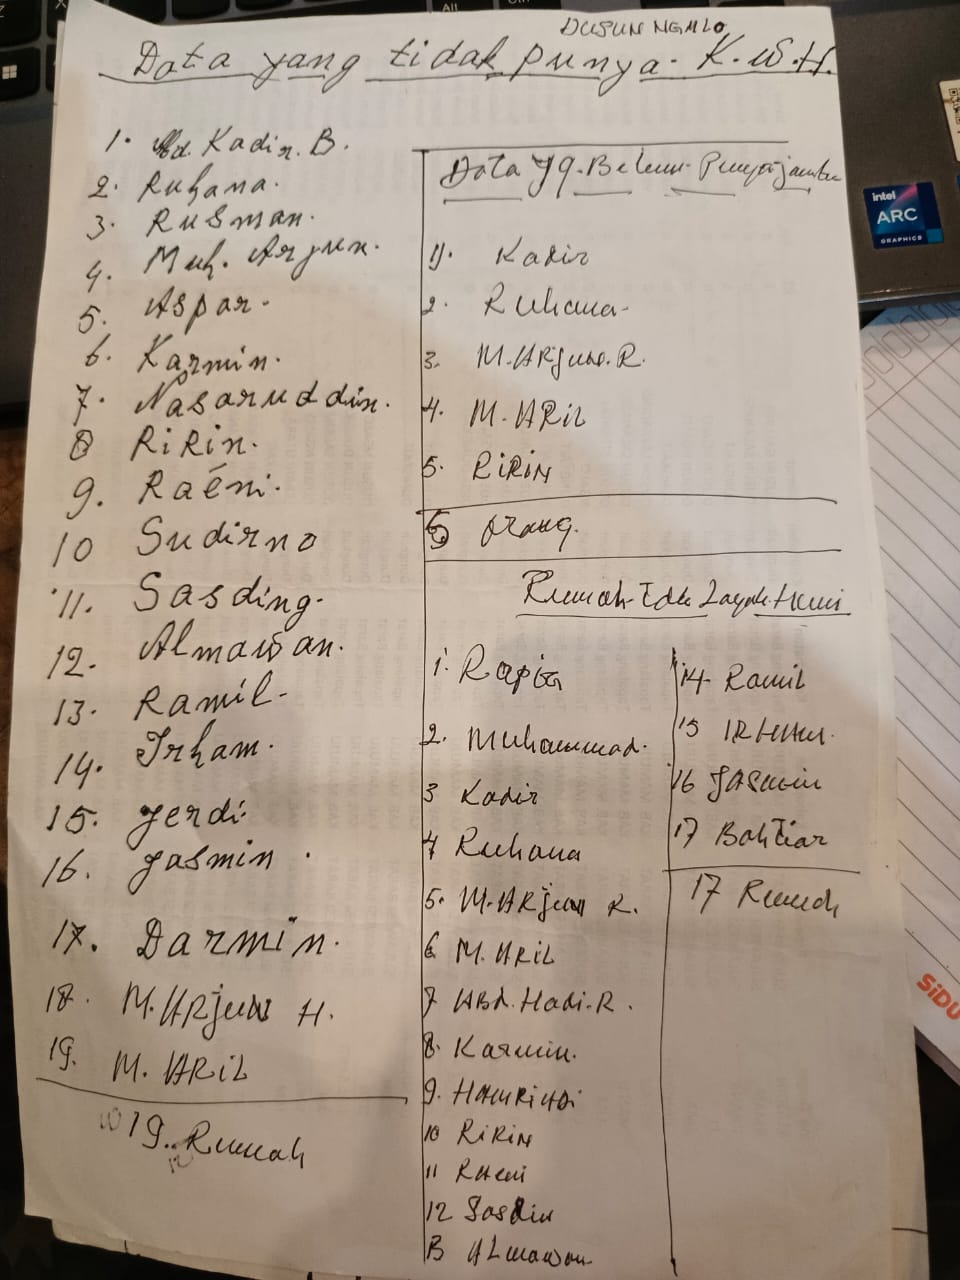 DUSUN NGALO
Data yang tidak punya. K.W.H.
1. Abd. Kadir. B.
2. Ruhana.
3. Rusman.
4. Muh. Arjun.
5. Aspar.
6. Karmin.
7. Nasaruddin.
8 RiRin.
9. Raéni.
10 Sudirno
11. Sasding.
12. Almawan.
13. Ramil.
14. Irham.
15. Jerdi.
16. Jasmin.
17. Darmin.
18. M. ARjun H.
19. M. ARiL
19. Rumah
Data Yg. Belum Punya jamban
1). Kadir
2. Ruhana
3. M. ARjuna. R.
4. M. ARiL
5. RiRiN
5 Orang.
Rumah Tdk Layak Huni
1. Rapia
2. Muhammad.
3 Kadir
4 Ruhana
5. M. ARjun R.
6 M. ARiL
7 ABd. Hadi. R.
8. Karmin.
9. HAMRiADi
10 RiRiN
11 RAeni
12 Sasdin
13 ALmawan
14 Ramil
15 IRHAM.
16 JASmin
17 Bahtiar
17 Rumah
intel
ARC
GRAPHICS
SiDU
Alt